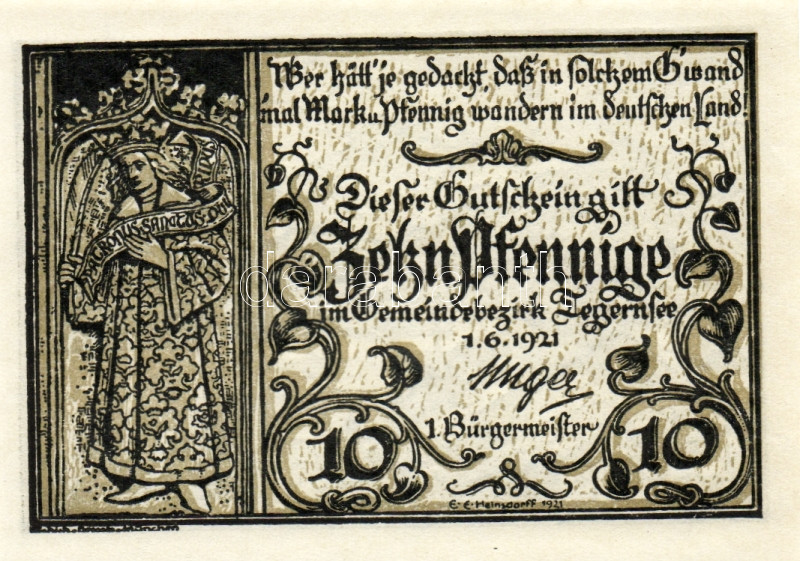 Wer hätt' je gedacht, daß in solchem G'wand
'mal Mark u. Pfennig wandern im deutschen Land.
Dieser Gutschein gilt
Zehn Pfennige
im Gemeindebezirk Tegernsee
1.6.1921
1. Bürgermeister
10
10
PATRONUS SANCTUS QUIRIN
E. E. Heinsdorff 1921
München
darabanth